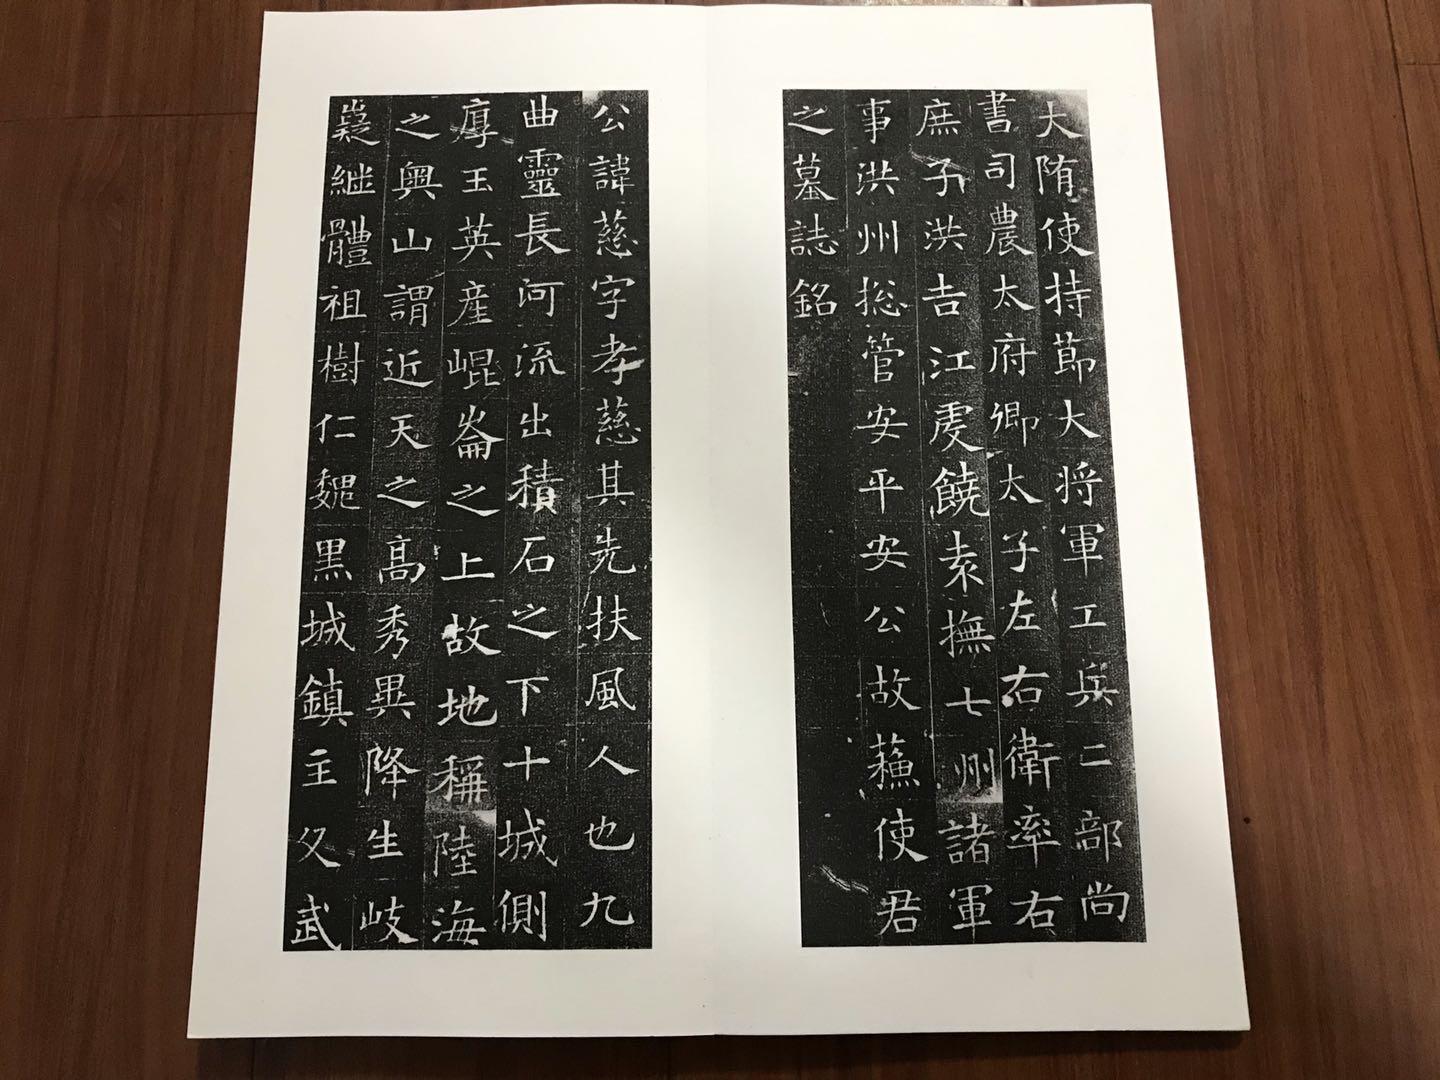 大隋使持節大將軍工兵二部尚
書司農太府卿太子左右衛率右
庶子洪吉江虔饒袁撫七州諸軍
事洪州摠管安平安公故蘓使君
之墓誌銘
公諱慈字孝慈其先扶風人也九
曲靈長河流出積石之下十城側
厚玉英産崐崙之上故地稱陸海
之奧山謂近天之高秀異降生岐
嶷継體祖樹仁魏黑城鎮主父武